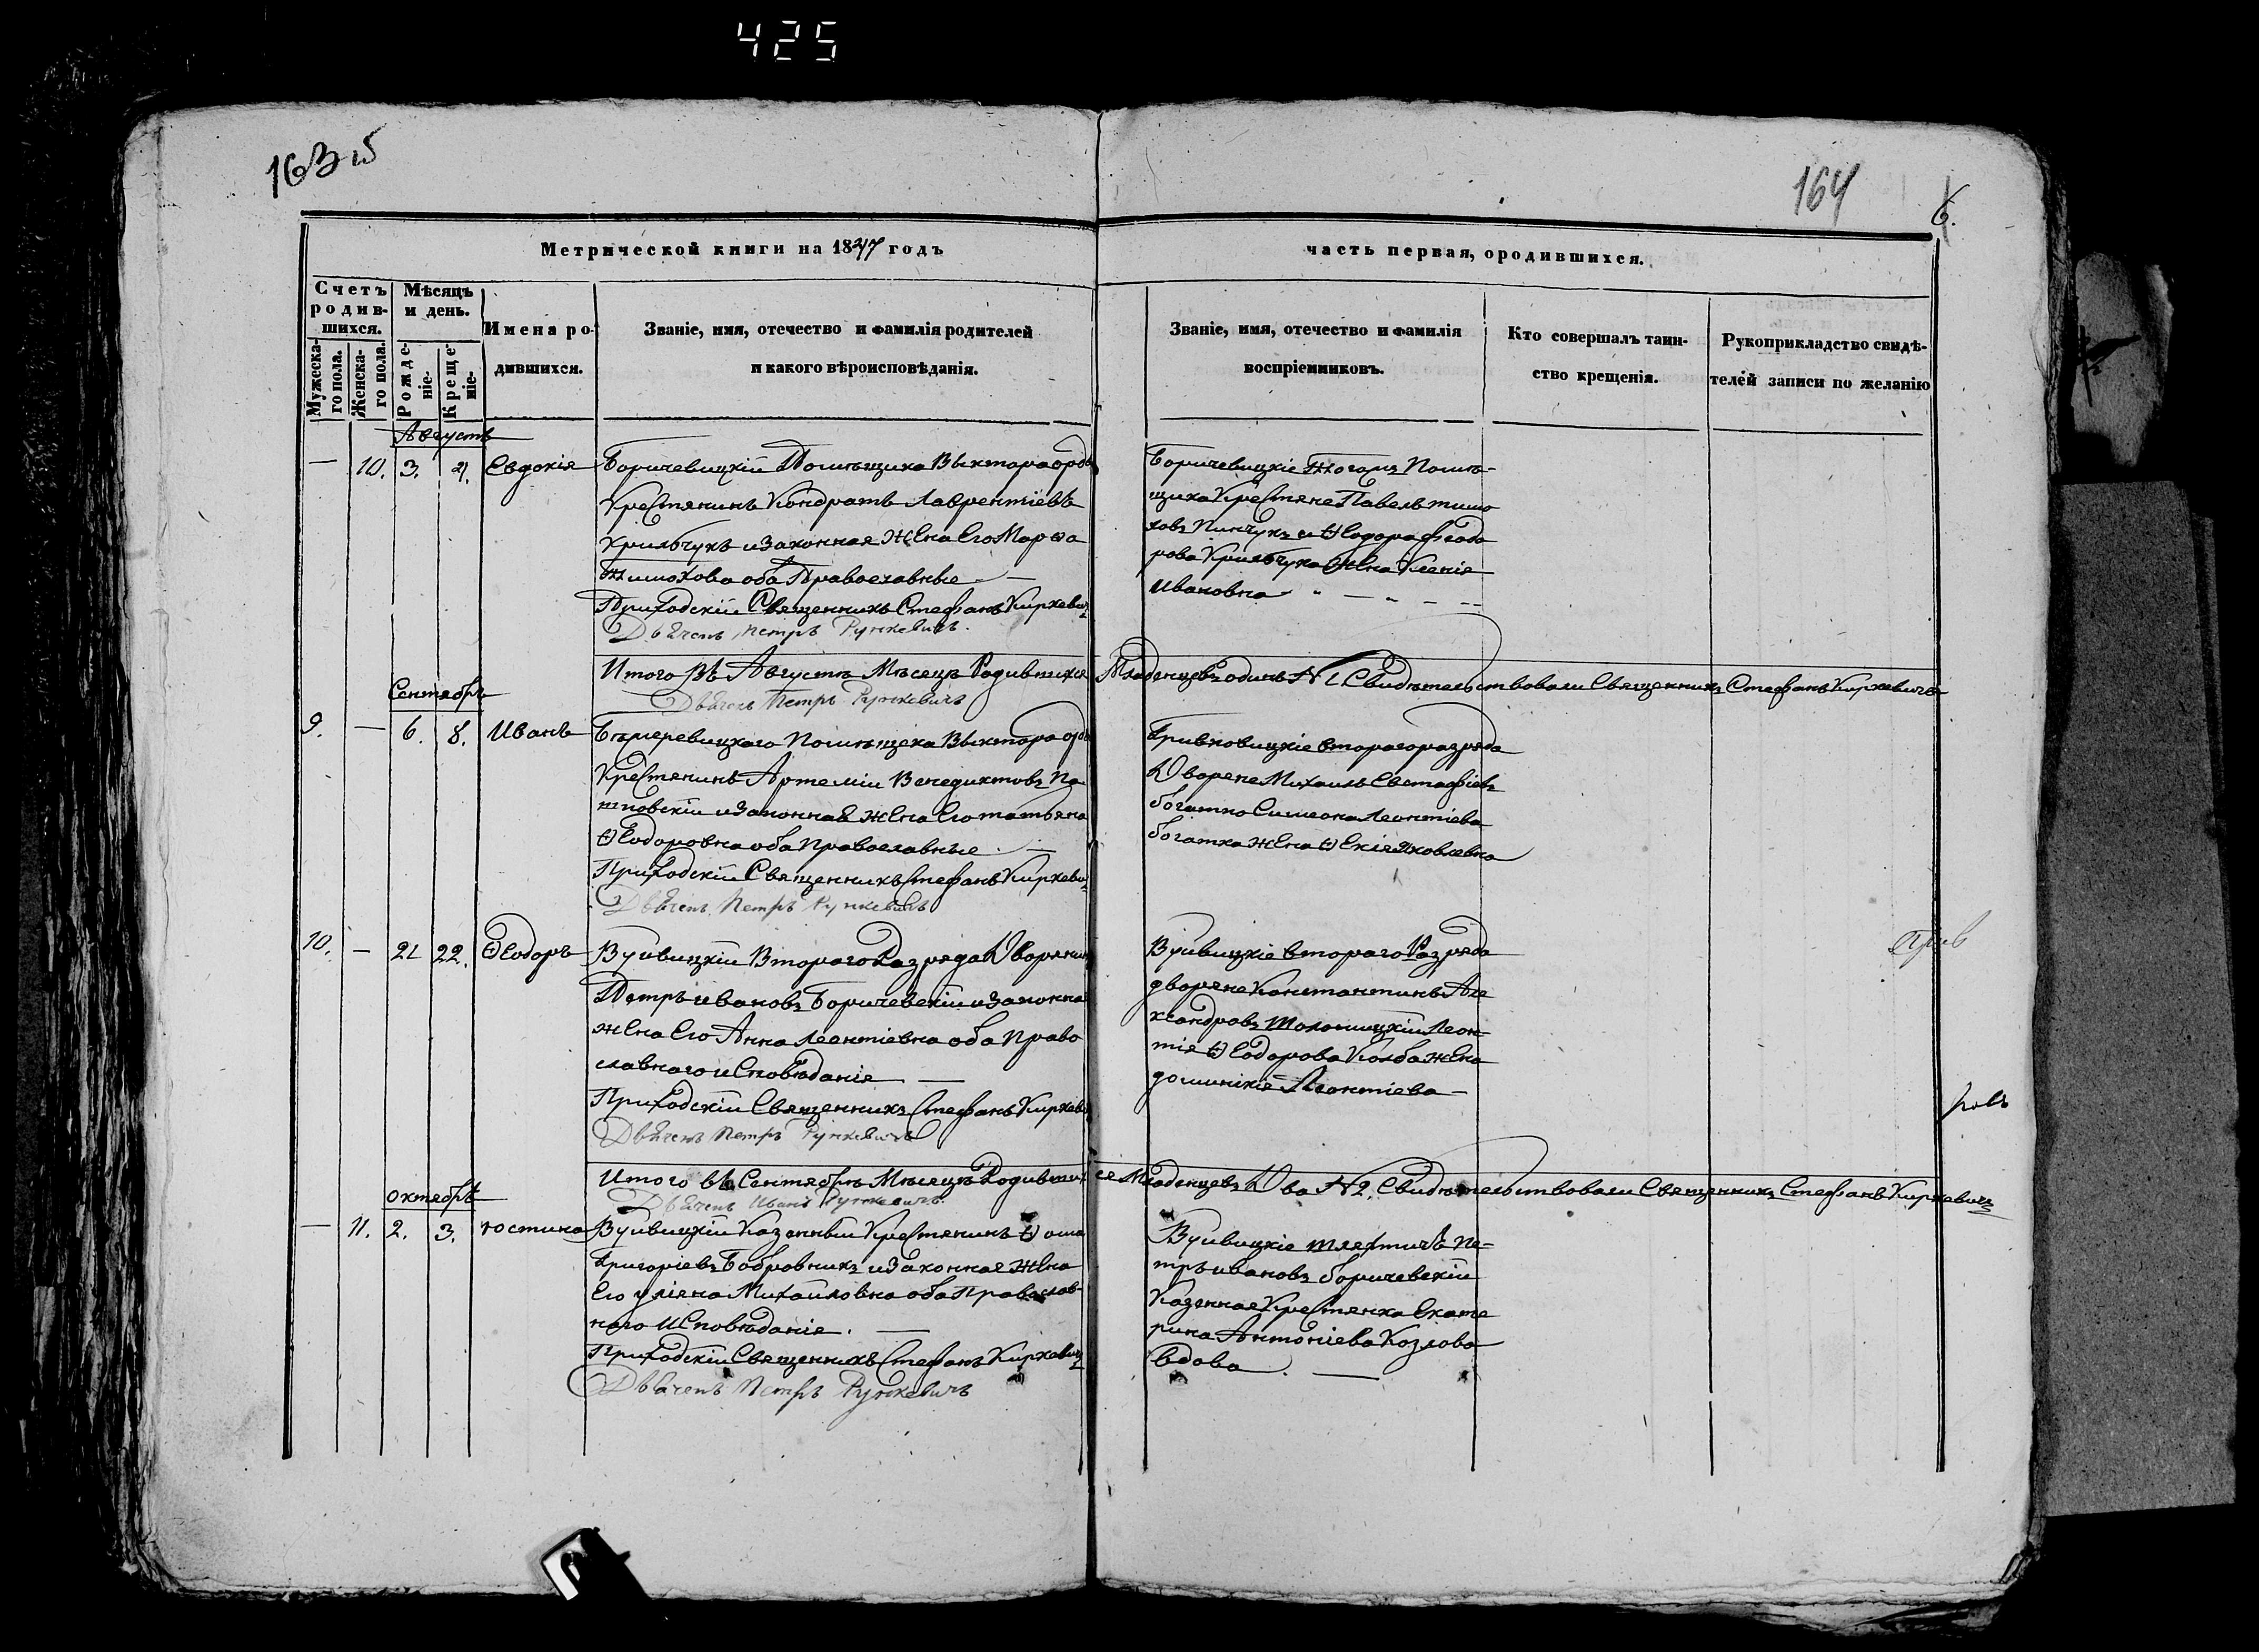 425
163
164
6.
Метрической книги на 1847 годъ
часть первая, ородившихся.
Счетъ родив-шихся.
Мѣсяцъ и день.
Имена ро-дившихся.
Званіе, имя, отечество и фамилія родителей
и какого вѣроисповѣданія.
Званіе, имя, отечество и фамилія
воспріемниковъ.
Кто совершалъ таин-
ство крещенія.
Рукоприкладство свидѣ-
телей записи по желанію
Мужеска-го пола.
Женска-го пола.
Рожде-ніе.
Креще-ніе.
Августъ
— 10. 3. 4. Евдокія
Боричевицкій Помѣщика Выктора
Крестянинъ Кондратъ Лаврентіевъ
Крильчукъ изаконная жена Его Марѳа
Тимохова оба Православные —
Приходскій Священникъ Стефанъ Киркевичъ
Дьячекъ Петръ Рункевичъ.
Боричевицкіе тогожъ Помѣ-
щика Крестяне Павелъ тимо
ховъ Пинчукъ и Ѳеодора
рова Крильчука жена Ксенія
Ивановна
Итого въ Августѣ Мѣсяцѣ Родившихся Младенцевъ одинъ N 1. Свидѣтельствовали Священникъ Стефанъ Киркевичъ
Дьячекъ Петръ Рункевичъ
Сентябрь
9. — 6. 8. Иванъ
Помѣщека Выктора
Крестянинъ Артемій Венедиктовъ
изаконная жена Его татьяна
Ѳеодоровна оба Православные. —
Приходскій Священникъ Стефанъ Киркевичъ
Дьячекъ Петръ Рункевичъ
Гривковицкіе второгоразряда
Дворяне Михаилъ Евстафіевъ
богатко Симеона Леонтіева
богатка жена Ѳекія Яковлевна
10. — 21 22. Ѳеодоръ
Вуйвицкій Второго Разряда Дворянинъ
Петръ ивановъ Боричевскій изаконна
жена Его Анна Леонтіевна оба Право
славного исповѣданія —
Приходскій Священникъ Стефанъ Киркевичъ
Дьячекъ Петръ Рункевичъ
Вуйвицкіе второго Разряда
дворяне Константинъ Але
ксандровъ Леон-
тія Ѳеодорова Колба жена
доминикія Леонтіева —
Итого въ Сентябрѣ Мѣсяцѣ Родившихся Младенцевъ Два N 2. Свидѣтельствовали Священникъ Стефанъ Киркевичъ
Дьячекъ Иванъ Рункевичъ.
октябрь
— 11. 2. 3. юстина
Вуйвицкій Казенный Крестянинъ Ѳома
Григоріевъ Бобровникъ изаконная жена
Его уліяна Михайловна оба Православ-
ного Исповѣданія. —
Приходскій Священникъ Стефанъ Киркевичъ
Дьячекъ Петръ Рункевичъ
Вуйвицкіе шляхтичъ Пе-
тръ ивановъ боричевскій
Казенная Крестянка Екате
рина Антоніева Козлова
вдова. —